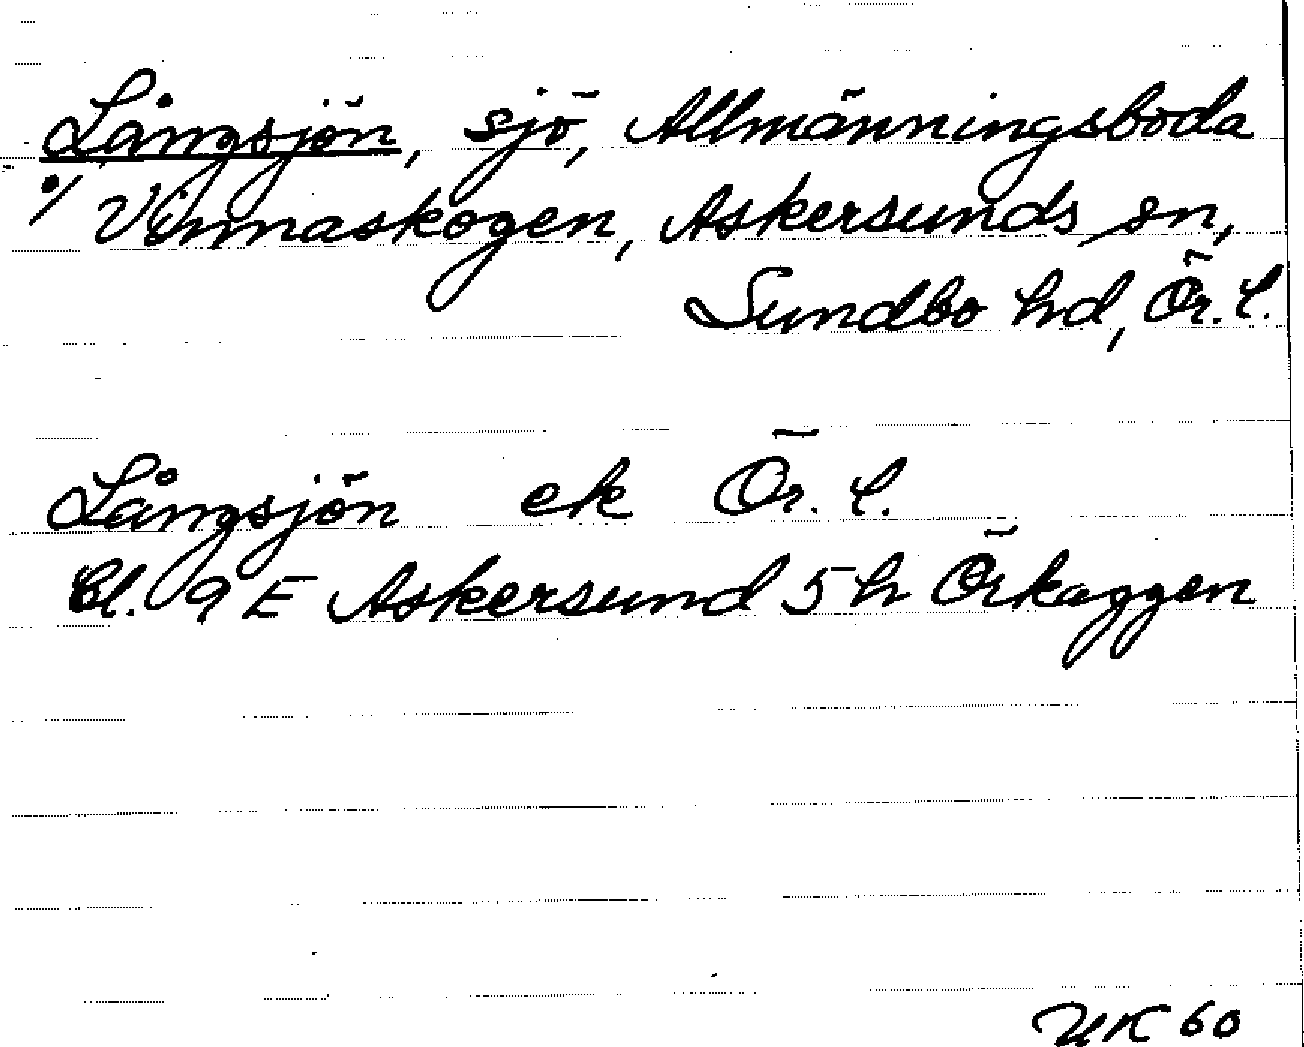 Långsjön, sjö, Allmänningsboda
% Vinnaskogen, Askersunds sn,
Sundbo hd, Ör. l.
Långsjön ek Ör. l.
Bl. 9 E Askersund 5 h Örkaggen
UK 60